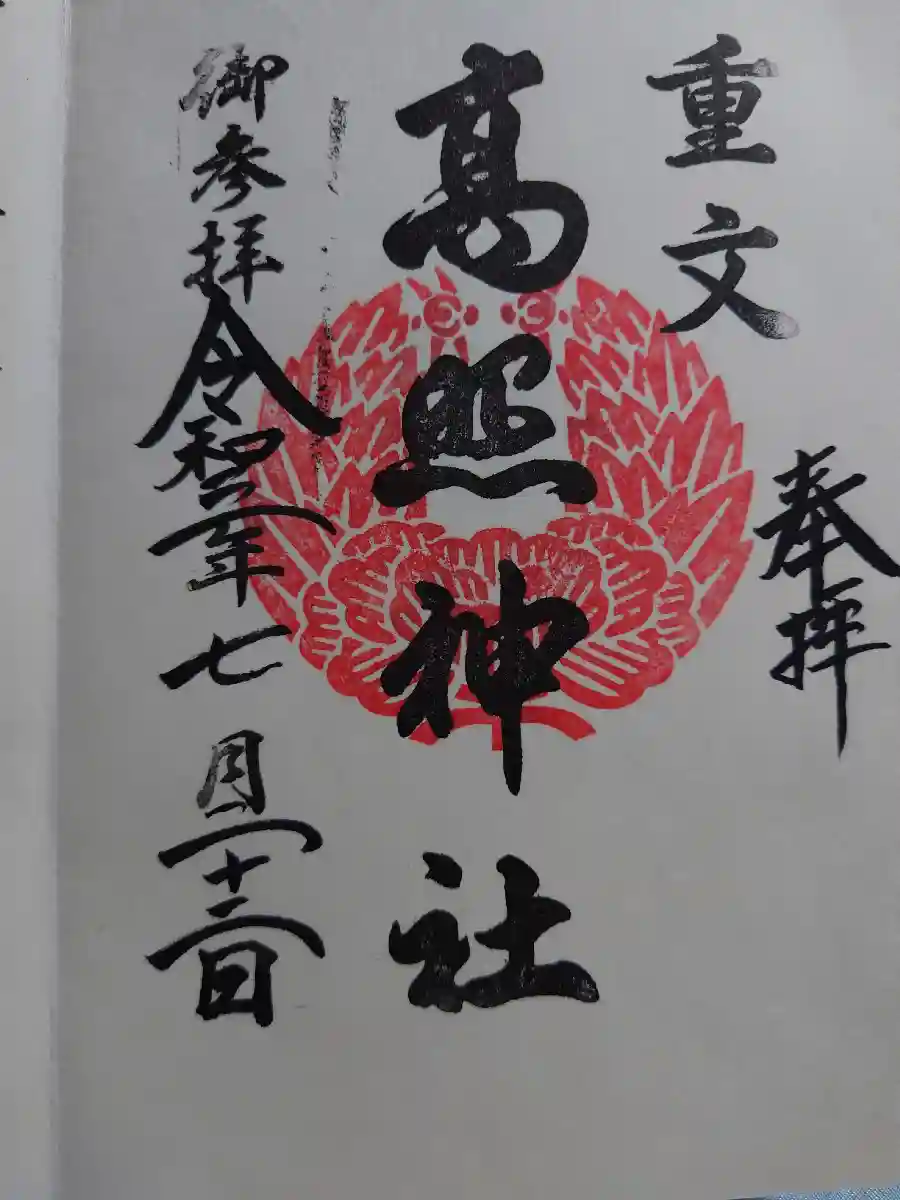 奉拝
重文
高照神社
御参拝
令和二年七月二十三日